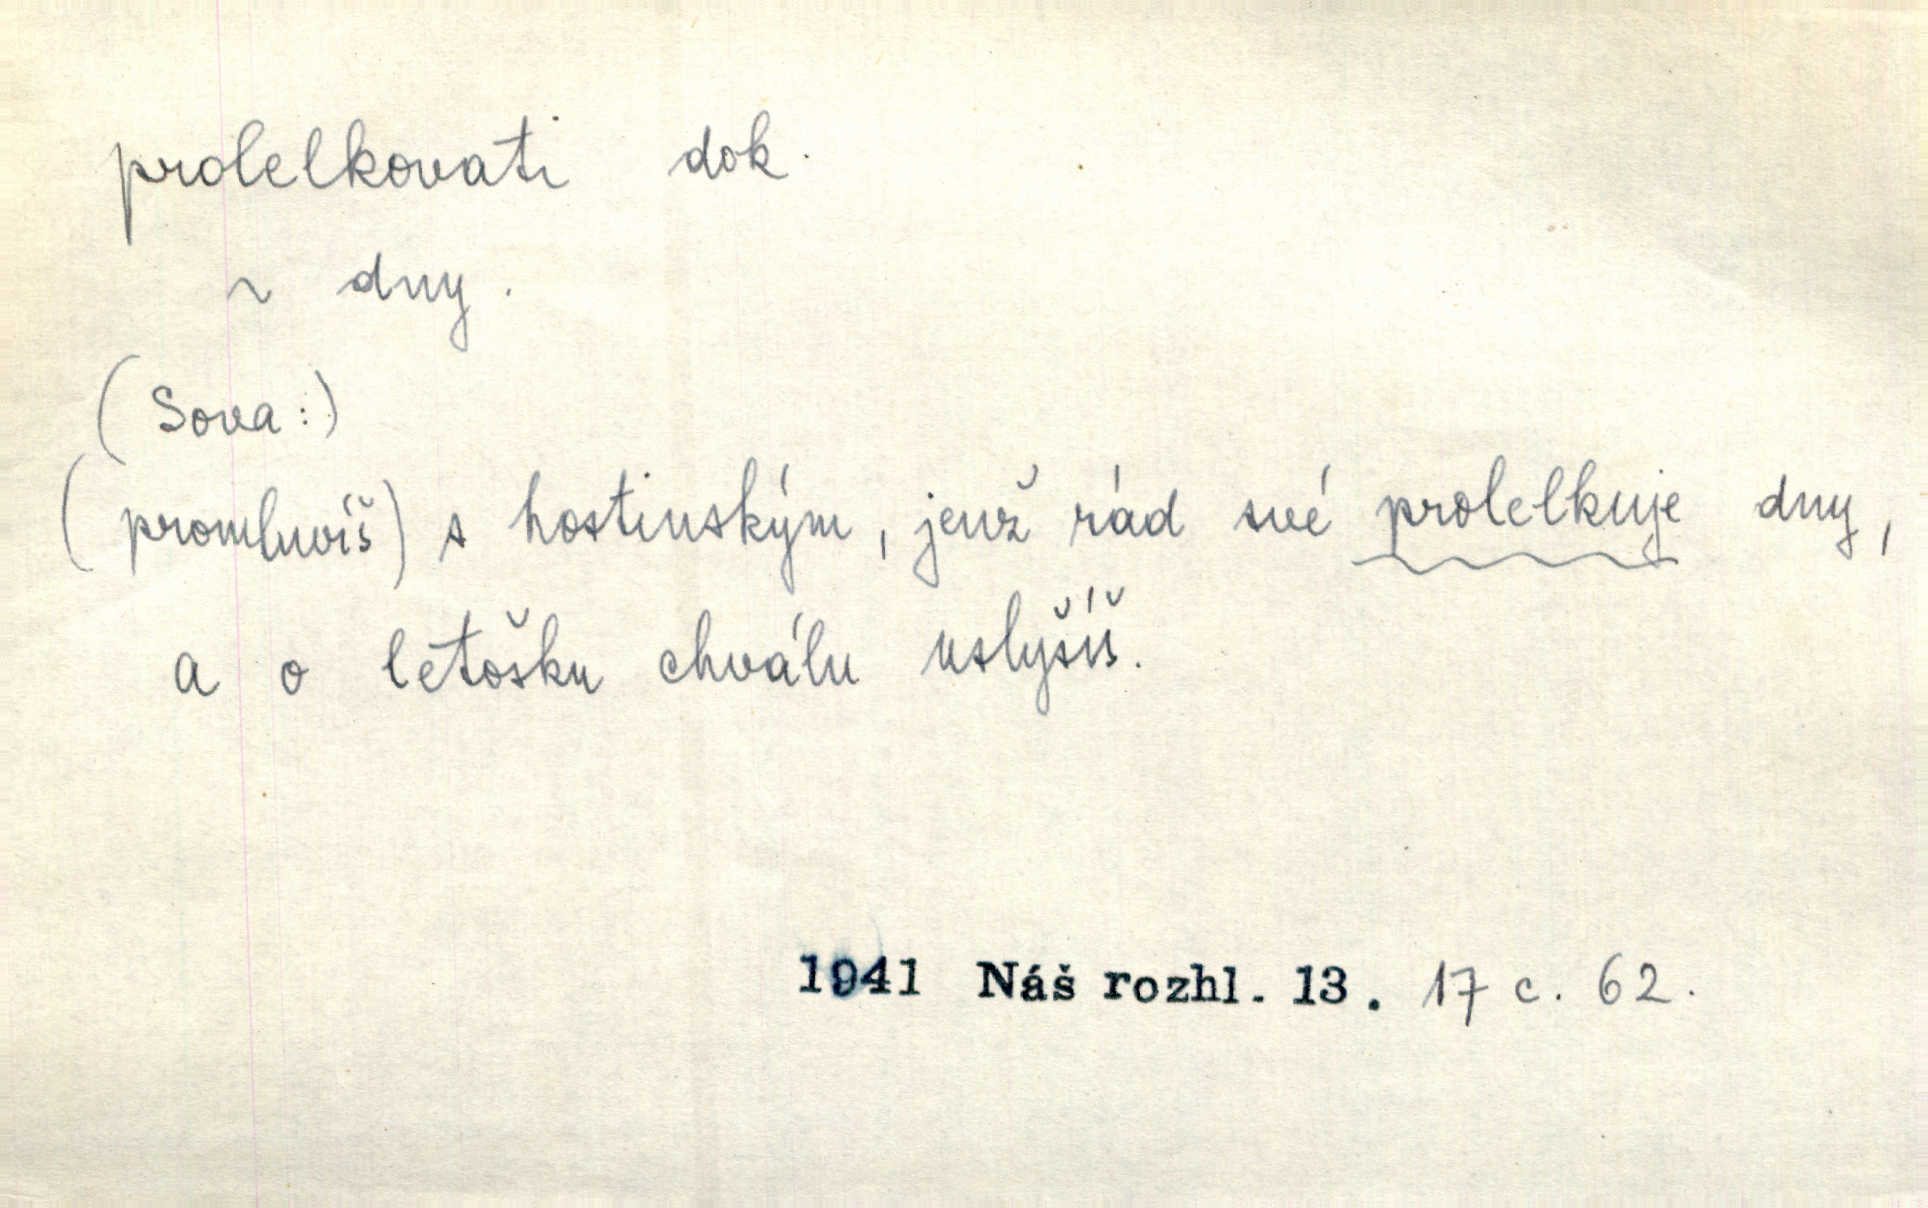 prolelkovati dok.
~ dny.
(Sova:)
(promluvíš) s hostinským, jenž rád své prolelkuje dny,
a o letošku chválu uslyšíš.
1941 Náš rozhl. 13. 17 c. 62.